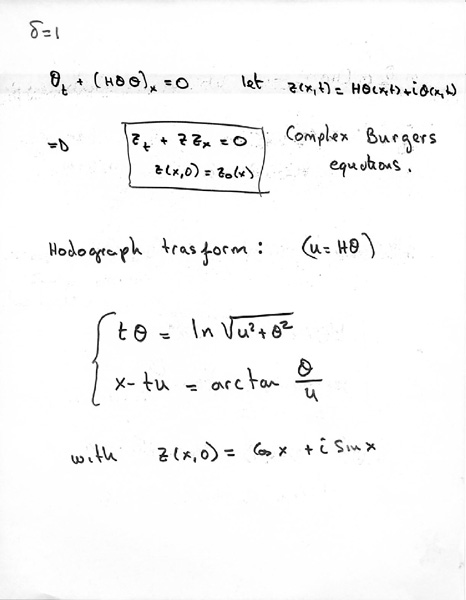 δ=1
θ_t + (Hθ θ)_x = 0 let z(x,t) = Hθ(x,t) + iθ(x,t)
⇒ z_t + z z_x = 0 Complex Burgers
z(x,0) = z_0(x) equations.
Hodograph trasform: (u = Hθ)
{ tθ = ln √(u²+θ²)
x - tu = arctan θ/u
with z(x,0) = Cos x + i Sin x